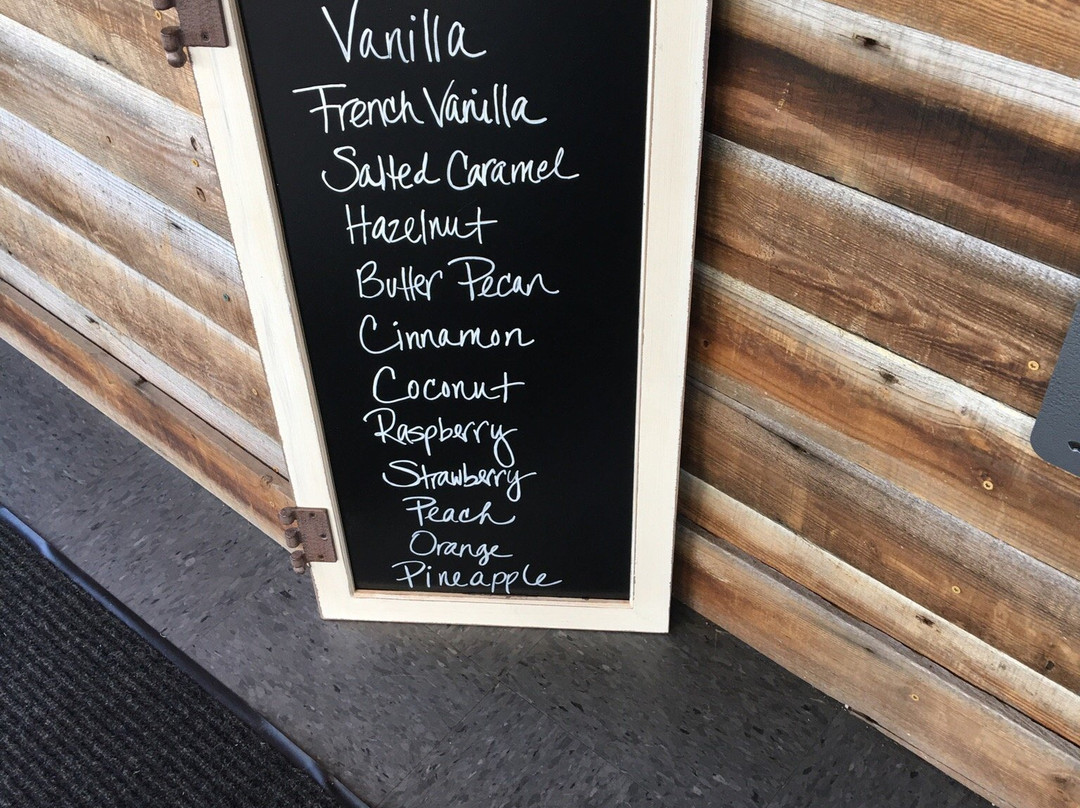 Vanilla
French Vanilla
Salted Caramel
Hazelnut
Butter Pecan
Cinnamon
Coconut
Raspberry
Strawberry
Peach
Orange
Pineapple